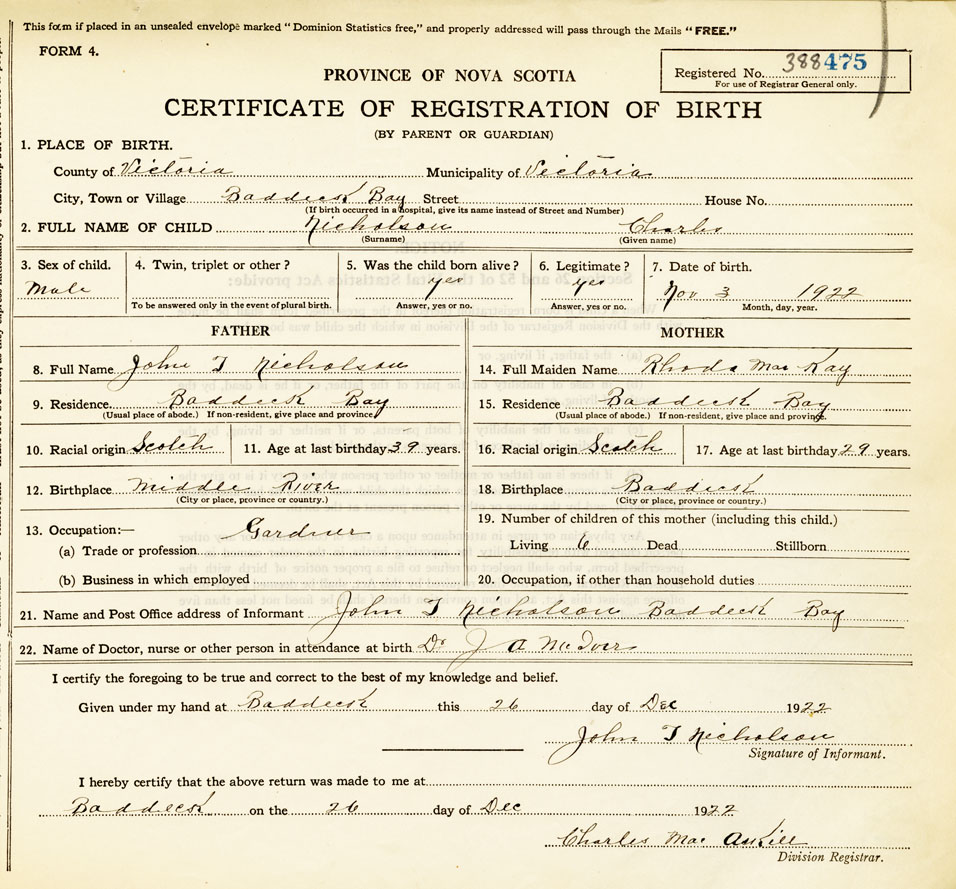 This form if placed in an unsealed envelope marked "Dominion Statistics free," and properly addressed will pass through the Mails "FREE."
FORM 4.
Registered No. 388475
For use of Registrar General only.
PROVINCE OF NOVA SCOTIA
CERTIFICATE OF REGISTRATION OF BIRTH
(BY PARENT OR GUARDIAN)
1. PLACE OF BIRTH.
County of Victoria Municipality of Victoria
City, Town or Village Baddeck Bay Street House No.
(If birth occurred in a hospital, give its name instead of Street and Number)
2. FULL NAME OF CHILD Nicholson Charles
(Surname) (Given name)
3. Sex of child. 4. Twin, triplet or other? 5. Was the child born alive? 6. Legitimate? 7. Date of birth.
Male yes yes Nov 3 1922
To be answered only in the event of plural birth. Answer, yes or no. Answer, yes or no. Month, day, year.
FATHER MOTHER
8. Full Name John T Nicholson 14. Full Maiden Name Rhoda Mac Kay
9. Residence Baddeck Bay 15. Residence Baddeck Bay
(Usual place of abode.) If non-resident, give place and province. (Usual place of abode.) If non-resident, give place and province.
10. Racial origin Scotch 11. Age at last birthday 39 years. 16. Racial origin Scotch 17. Age at last birthday 29 years.
12. Birthplace Middle River 18. Birthplace Baddeck
(City or place, province or country.) (City or place, province or country.)
13. Occupation:— Gardner 19. Number of children of this mother (including this child.)
(a) Trade or profession Living 6 Dead Stillborn
(b) Business in which employed 20. Occupation, if other than household duties
21. Name and Post Office address of Informant John T Nicholson Baddeck Bay
22. Name of Doctor, nurse or other person in attendance at birth Dr J A
I certify the foregoing to be true and correct to the best of my knowledge and belief.
Given under my hand at Baddeck this 26 day of Dec 1922
John T Nicholson
Signature of Informant.
I hereby certify that the above return was made to me at
Baddeck on the 26 day of Dec 1922
Charles Mac
Division Registrar.